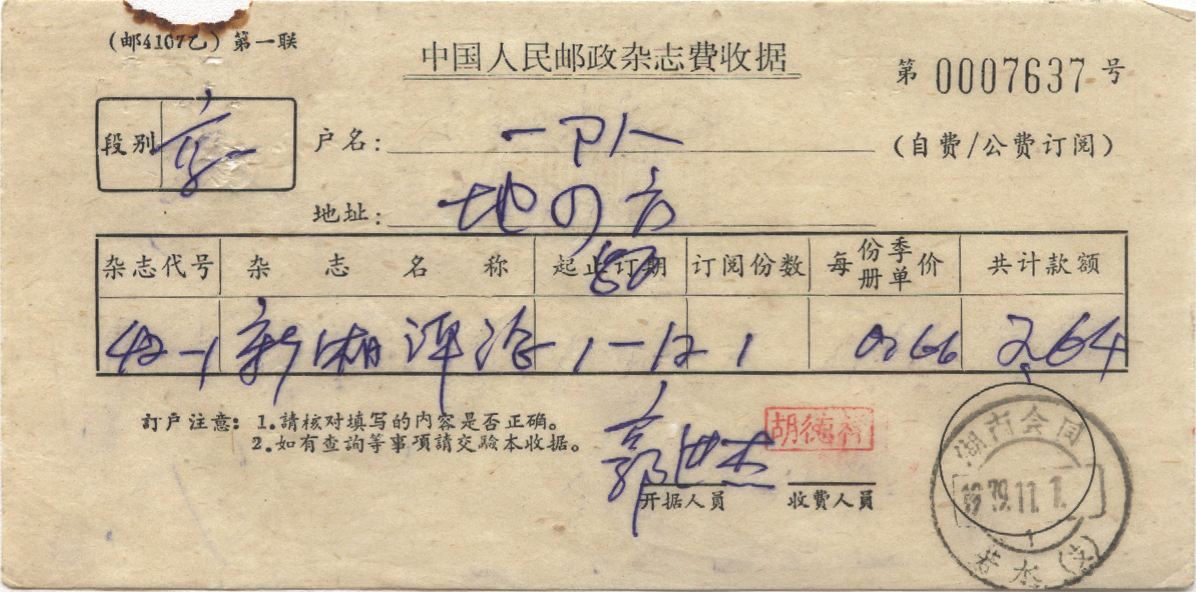 (邮4107乙) 第一联
中国人民邮政杂志費收据
第 0007637 号
段别
户名:
(自费/公费订阅)
地址: 地
杂志代号 杂志名称 起止订期 订阅份数 每份季册单价 共计款额
42-1 新湘评论 1-12 1 0.66 2.64
訂戶注意: 1.請核对填写的内容是否正确。
2.如有查詢等事項請交驗本收据。
胡德
开据人员 收费人员
湖南会同
1979.11.1.
1
若水(支)